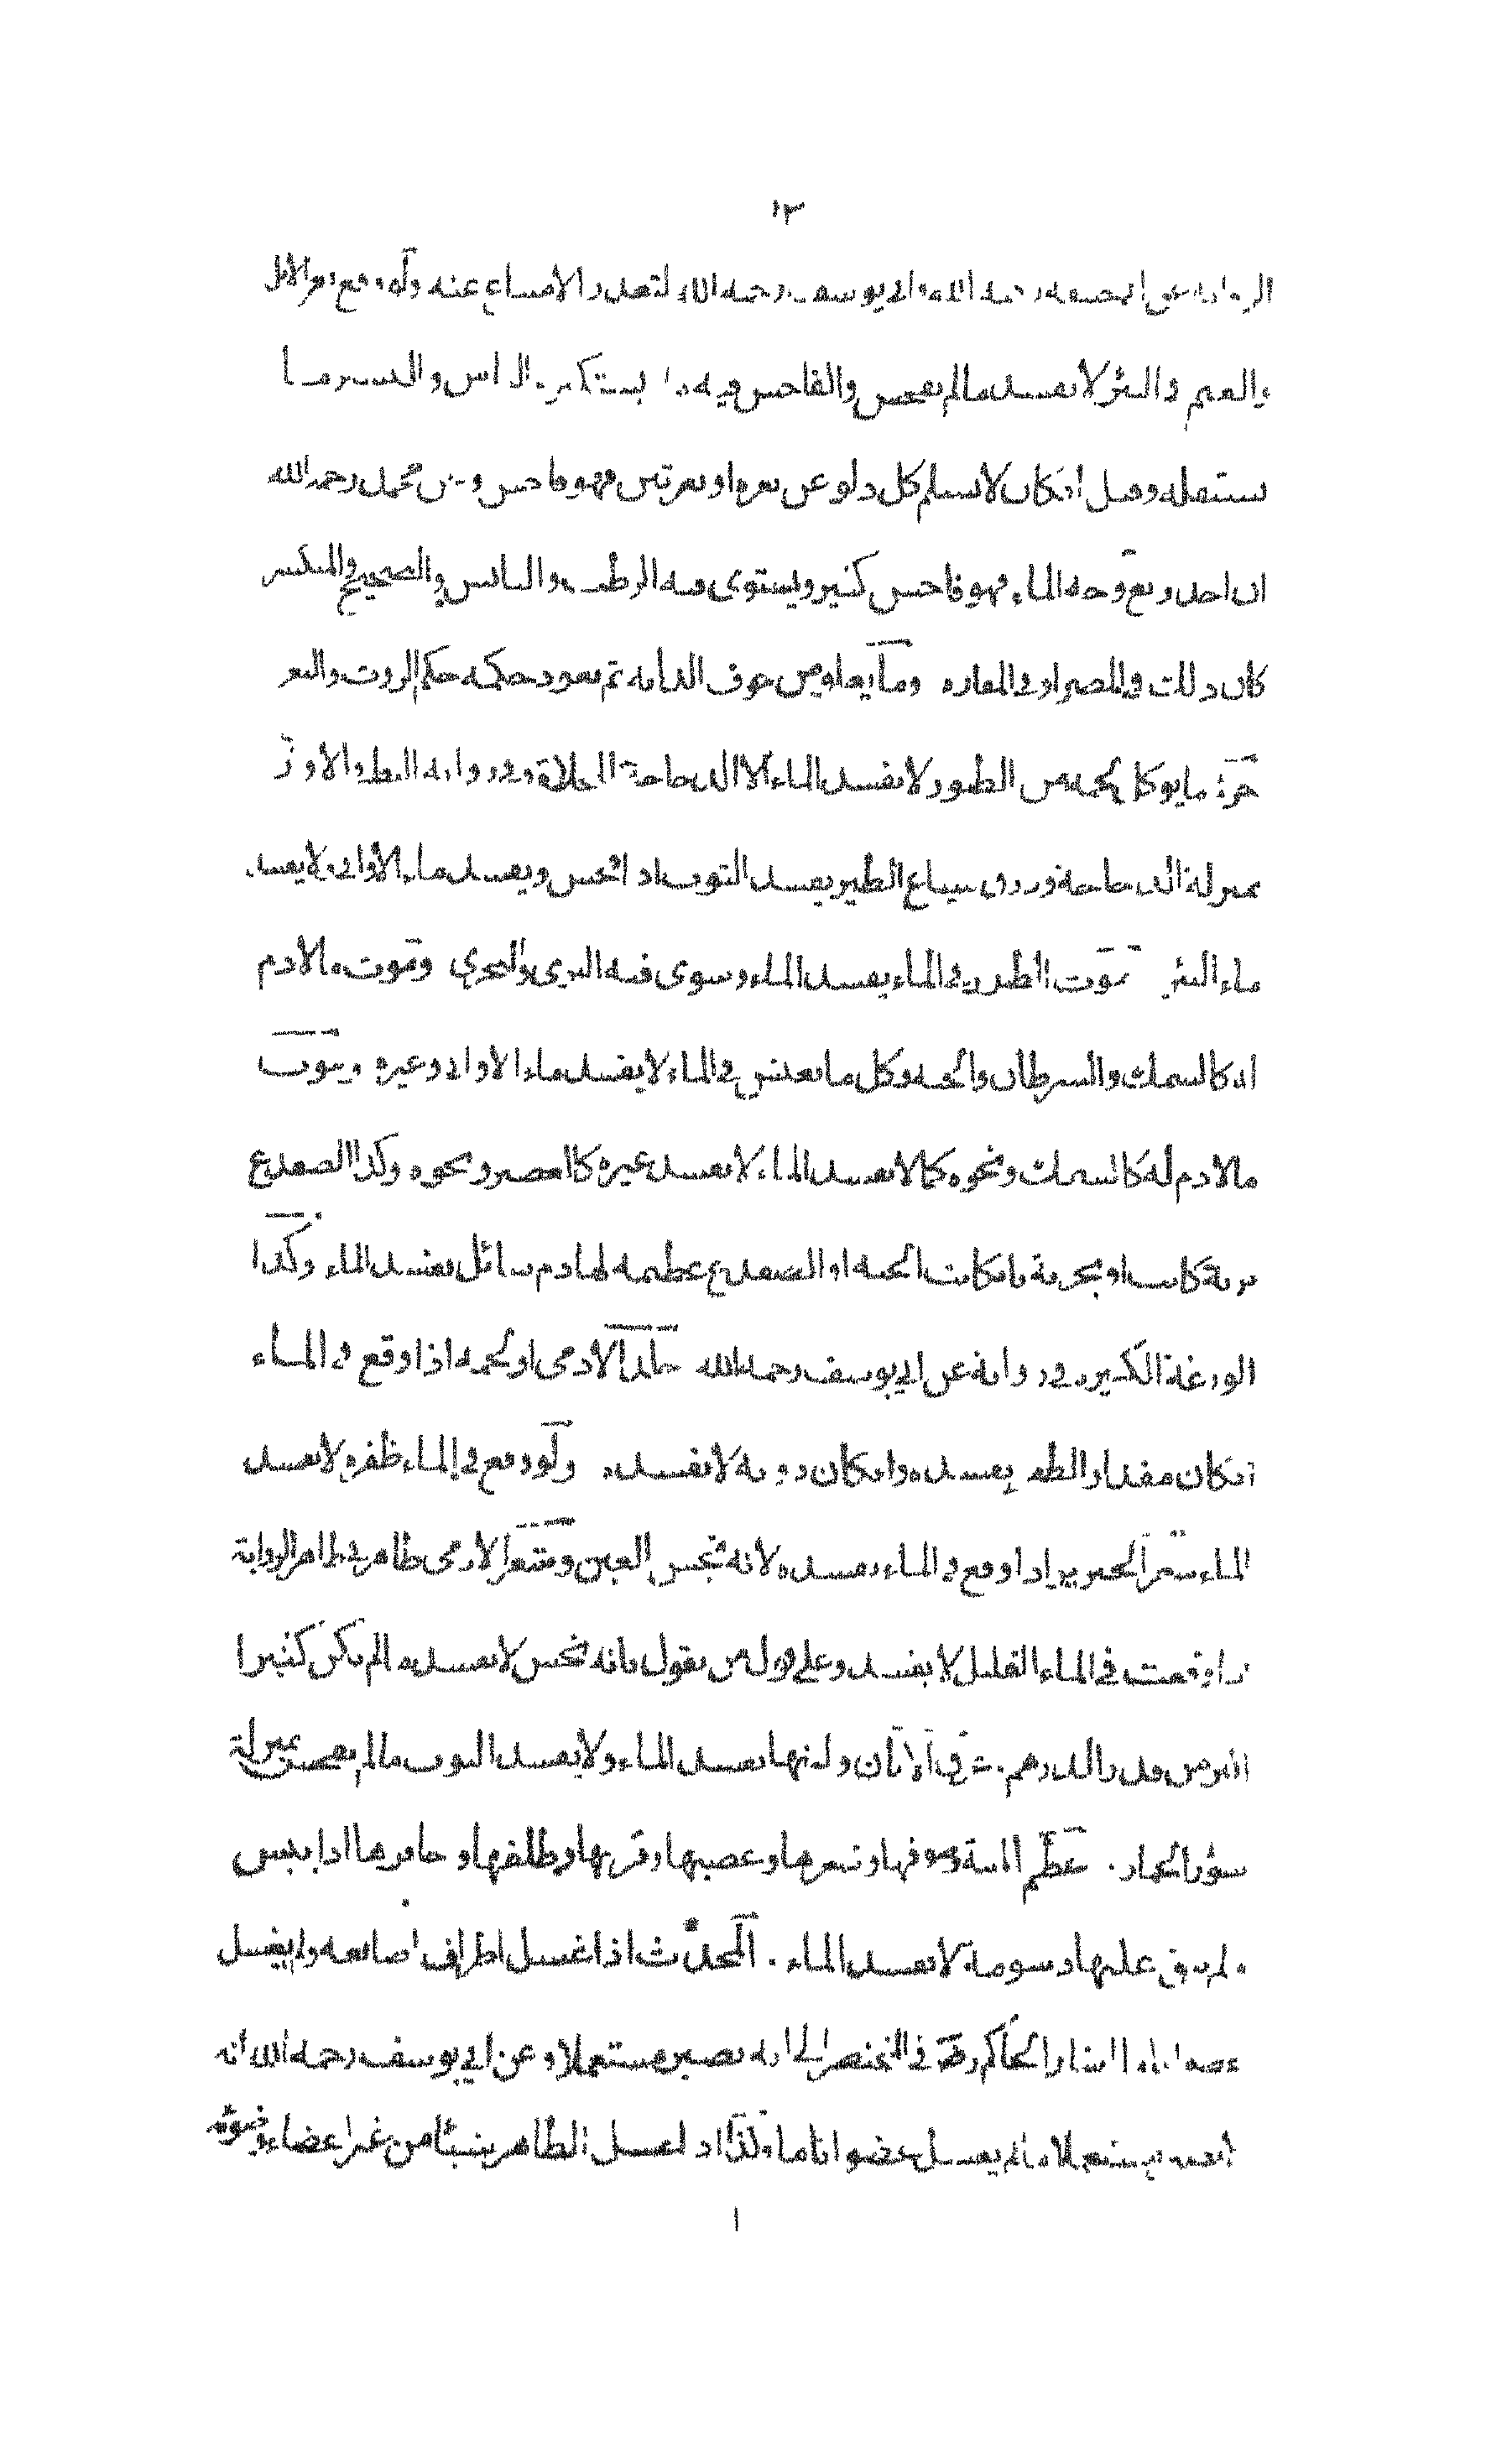 ١٣
الروايات عن ابي حنيفه رحمه الله وابي يوسف رحمه الله لتعذر الامتناع عنه ولو وقع بعر الابل
والغنم في البئر لا يفسد مالم يفحش والفاحش فيه ما يستكثره الناس واليسير ما
يستقله وقيل ان كان لا يسلم كل دلو عن بعره او بعرتين فهو فاحش وعن محمد رحمه الله
ان اخذ ربع وجه الماء فهو فاحش كثير ويستوى فيه الرطب واليابس والصحيح والمنكسر
كان ذلك في المصر او في المفازه وما يعلو من جوف الدابه ثم يعود حكمه حكم الروث والبعر
خرء مايوكل لحمه من الطيور لا يفسد الماء الا الدجاجة المخلاة وفي رواية البط والاوز
بمنزلة الدجاجة وذرق سباع الطير يفسد الثوب اذا فحش ويفسد ماء الاواني ولا يفسد
ماء البئر موت الطير في الماء يفسد الماء وسوى فيه البري والبحري وموت مالا دم
له كالسمك والسرطان والحيه وكل ما يعيش في الماء لا يفسد ماء الاواني وغيره وموت
مالا دم له كالسمك ونحوه كما لا يفسد الماء لا يفسد غيره كالعصير ونحوه وكذا الضفدع
برية كانت او بحرية فان كانت الحيه او الضفدع عظيمه لها دم سائل يفسد الماء وكذا
الوزغة الكبيره في رواية عن ابي يوسف رحمه الله جلد الادمى او لحمه اذا وقع في الماء
ان كان مقدار الظفر يفسده وان كان دونه لا يفسده ولو وقع في الماء ظفره لا يفسد
الماء شعر الخنزير اذا وقع في الماء يفسده لانه نجس العين وشعر الادمى طاهر في ظاهر الرواية
اذا وقعت في الماء القليل لا يفسد وعلى قول من يقول بانه نجس لا يفسده مالم يكن كثيرا
اكثر من قدر الدرهم عرق الاتان ولبنها يفسد الماء ولا يفسد الثوب مالم يفحش بمنزلة
سؤر الحمار عظم الميتة وصوفها وشعرها وعصبها وقرنها وظلفها وحافرها اذا يبس
ولم يبق عليها دسومة لا يفسد الماء المحدث اذا غسل اطراف اصابعه ولم يغسل
عضوا تاما اشار الحاكم في المختصر الى انه يصير مستعملا وعن ابي يوسف رحمه الله انه
لا يصير مستعملا مالم يغسل عضوا تاما وكذا اذا غسل الطاهر شيئا من غير اعضاء وضوئه
١